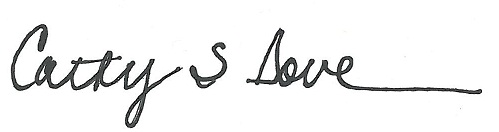 Cathy S Dove